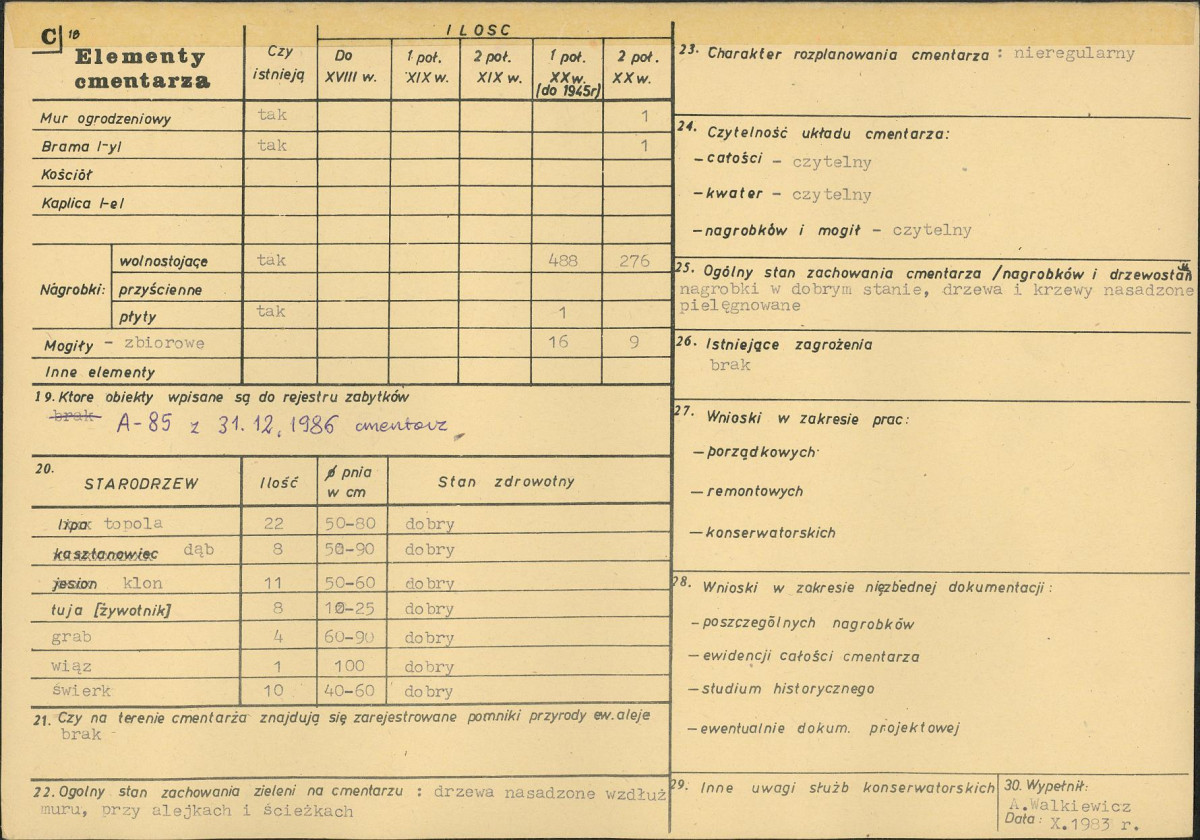 C 18
Elementy cmentarza
Czy istnieją
ILOSC
Do XVIII w.
1 poł. XIX w.
2 poł. XIX w.
1 poł. XX w. (do 1945r)
2 poł. XX w.
Mur ogrodzeniowy tak 1
Brama /-y/ tak 1
Kościół
Kaplica /-e/
Nagrobki: wolnostojące tak 488 276
przyścienne
płyty tak 1
Mogiły - zbiorowe 16 9
Inne elementy
19. Ktore obiekty wpisane są do rejestru zabytków
brak A-85 z 31.12.1986 cmentarz
20.
STARODRZEW Ilość ϕ pnia w cm Stan zdrowotny
lipa topola 22 50-80 dobry
kasztanowiec dąb 8 50-90 dobry
jesion klon 11 50-60 dobry
tuja [żywotnik] 8 10-25 dobry
grab 4 60-90 dobry
wiąz 1 100 dobry
świerk 10 40-60 dobry
21. Czy na terenie cmentarza znajdują się zarejestrowane pomniki przyrody ew. aleje
brak
22. Ogolny stan zachowania zieleni na cmentarzu : drzewa nasadzone wzdłuż
muru, przy alejkach i ścieżkach
23. Charakter rozplanowania cmentarza : nieregularny
24. Czytelność układu cmentarza:
- całości - czytelny
- kwater - czytelny
- nagrobków i mogił - czytelny
25. Ogólny stan zachowania cmentarza /nagrobków i drzewostan
nagrobki w dobrym stanie, drzewa i krzewy nasadzone
pielęgnowane
26. Istniejące zagrożenia
brak
27. Wnioski w zakresie prac:
- porządkowych
- remontowych
- konserwatorskich
28. Wnioski w zakresie niezbednej dokumentacji :
- poszczególnych nagrobków
- ewidencji całości cmentarza
- studium historycznego
- ewentualnie dokum. projektowej
29. Inne uwagi służb konserwatorskich
30. Wypełnił:
A.Walkiewicz
Data: X.1983 r.